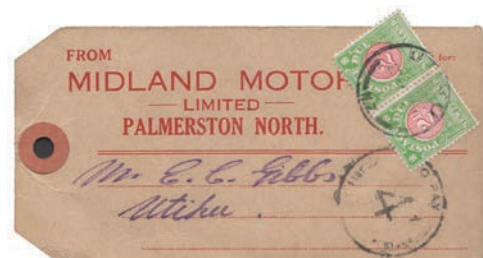 FROM
for:
MIDLAND MOTOR
LIMITED
PALMERSTON NORTH.
Mr E. C. Gibbs
Utiku.
4